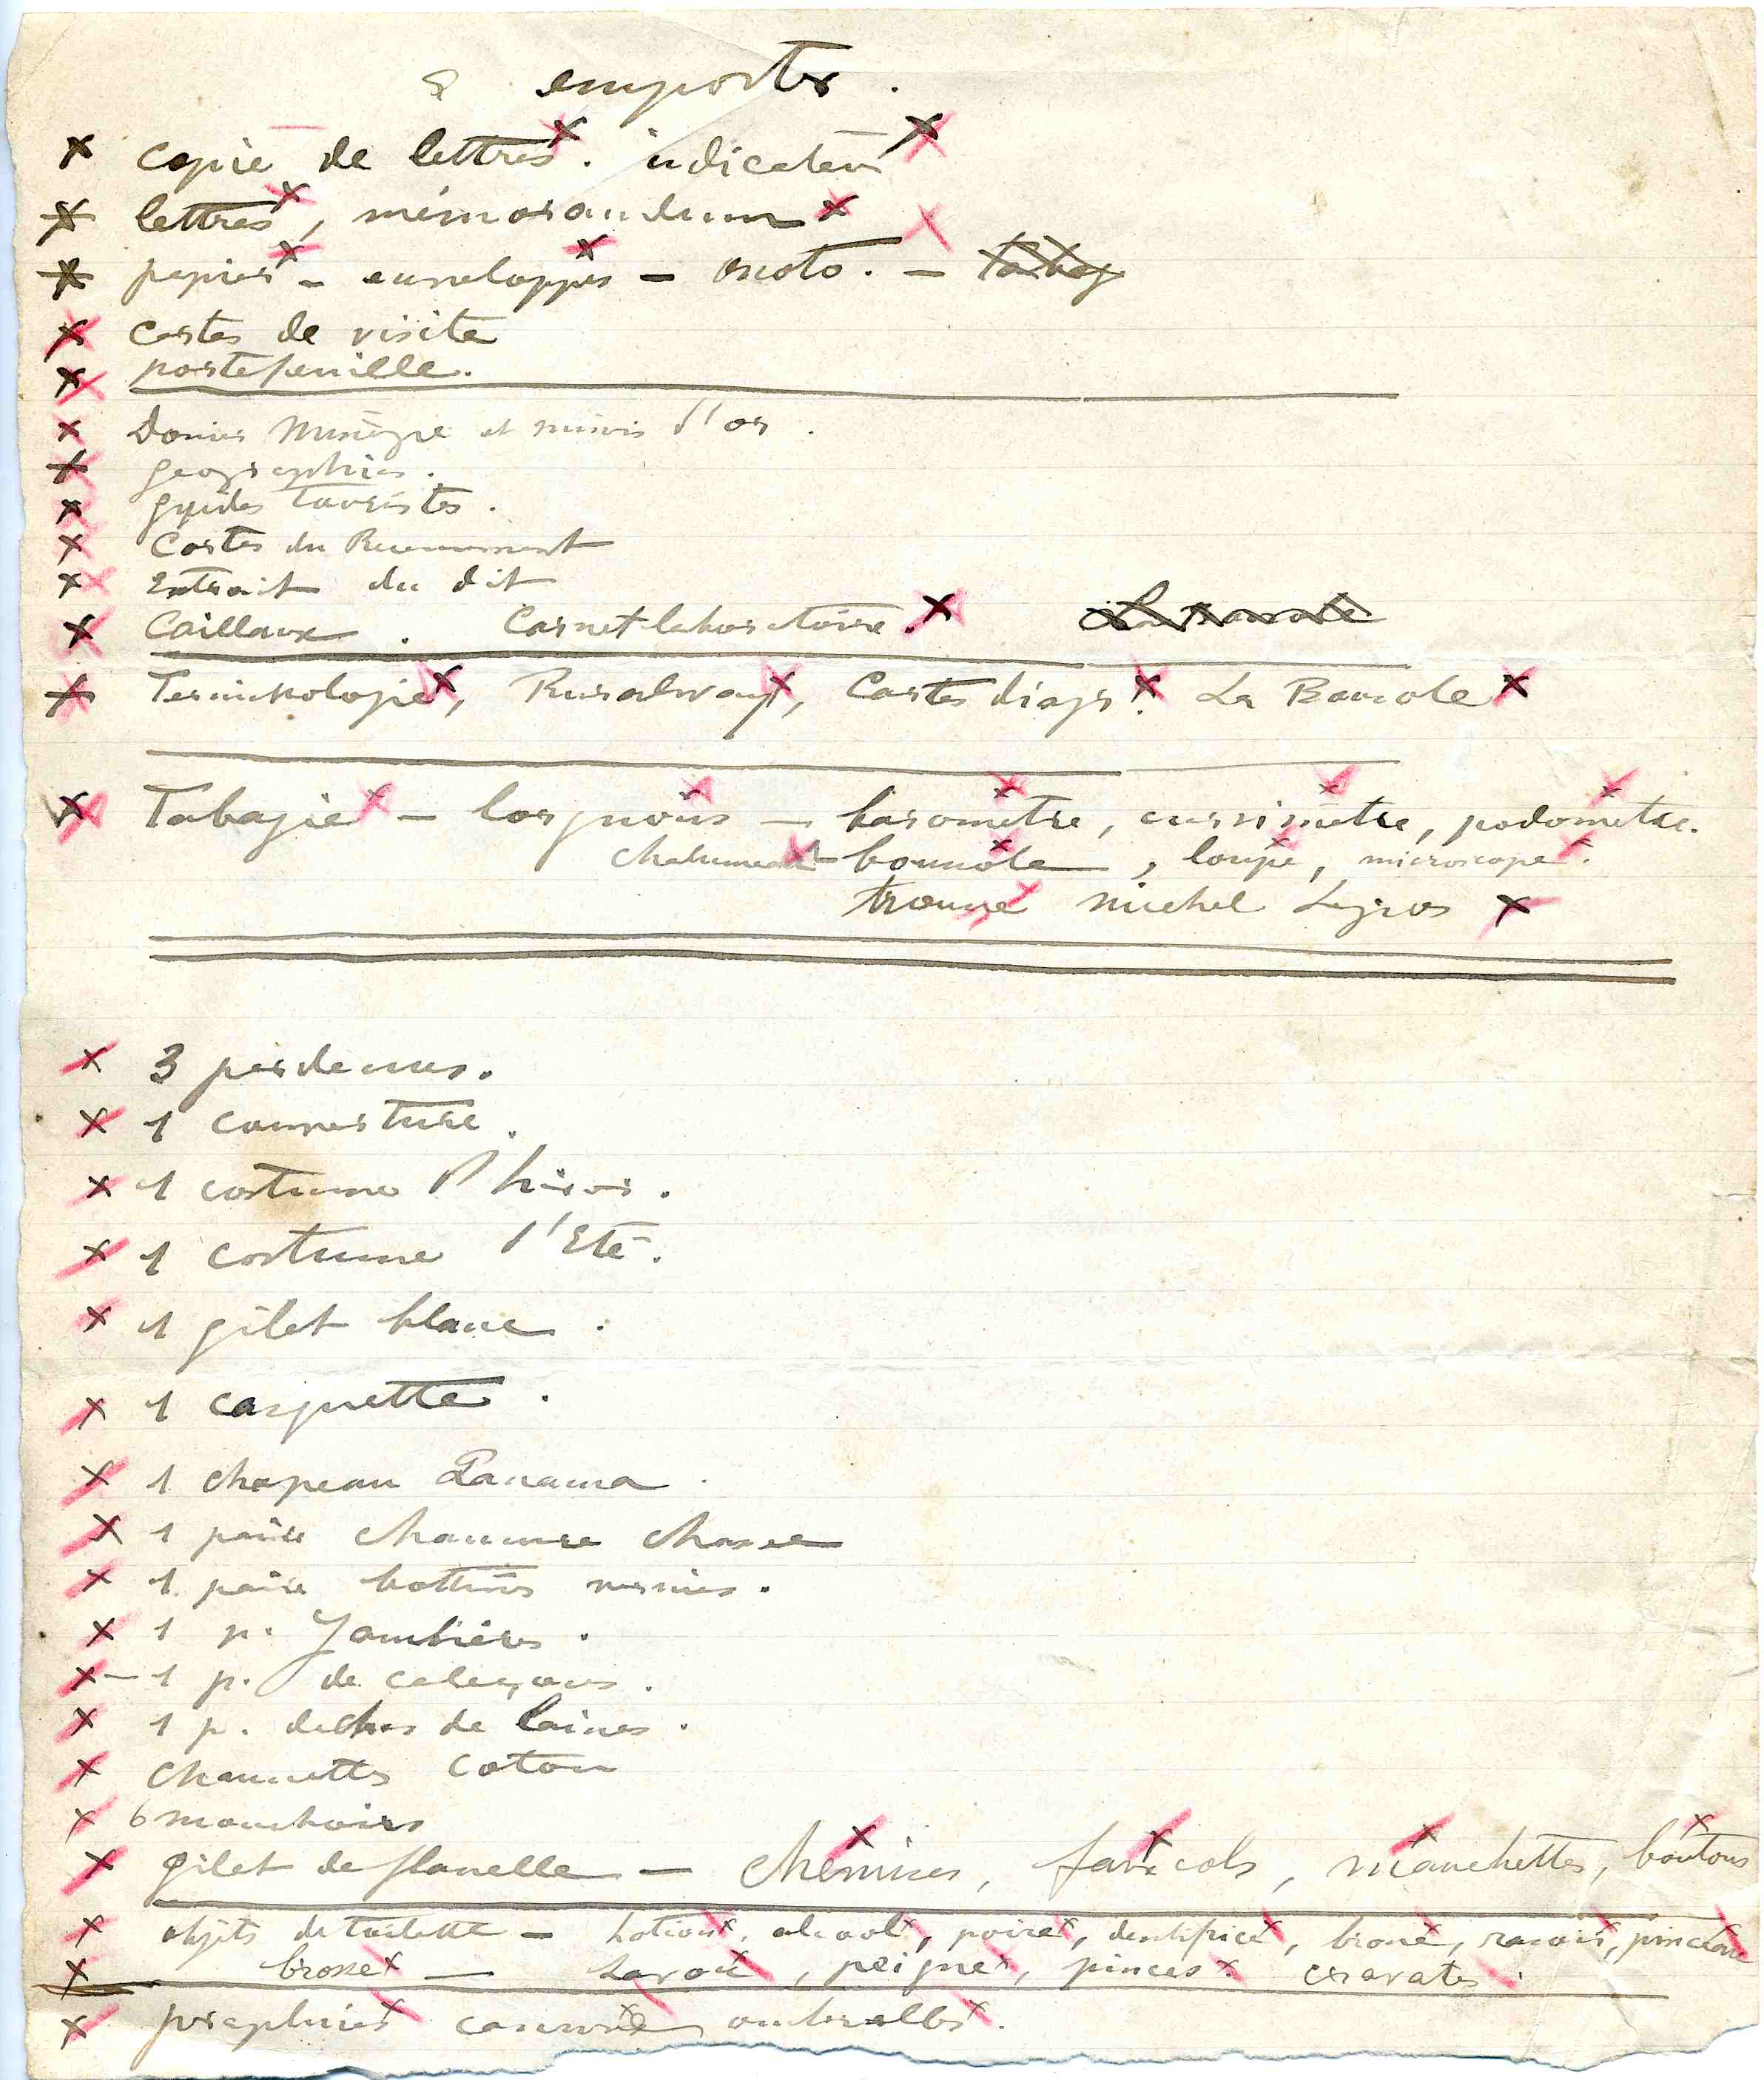 à emporter.
copie de lettres. indicateur
lettres, mémorandum
papier - enveloppes - moto. - tabac
cartes de visite
portefeuille.
Dossier et mines d'or.
geographies.
guides touristes.
Cartes du
Extrait du dit
Cailloux. Carnet laboratoire.
Terminologie, Ruralway, Cartes diogr. La
Tabagie - lorgnons - baromètre, curvimètre, podomètre.
chalumeau - boussole, loupe, microscope.
trousse michel Legros
3 pardessus.
1 couverture.
1 costume d'hiver.
1 costume d'Eté.
1 gilet blanc.
1 casquette.
1 chapeau Panama.
1 paire chaussure chasse
1 paire bottines vernies.
1 p. Jambières.
1 p. de caleçons.
1 p. de bas de laines.
chaussettes coton
6 mouchoirs
gilet de flanelle - chemises, faux cols, manchettes, boutons
objets de toilette - Lotion, alcool, poire, dentifrice, brosse, rasoir, pinceau
brosse - Savon, peigne, pinces. cravates.
parapluies cannes ombrelles.